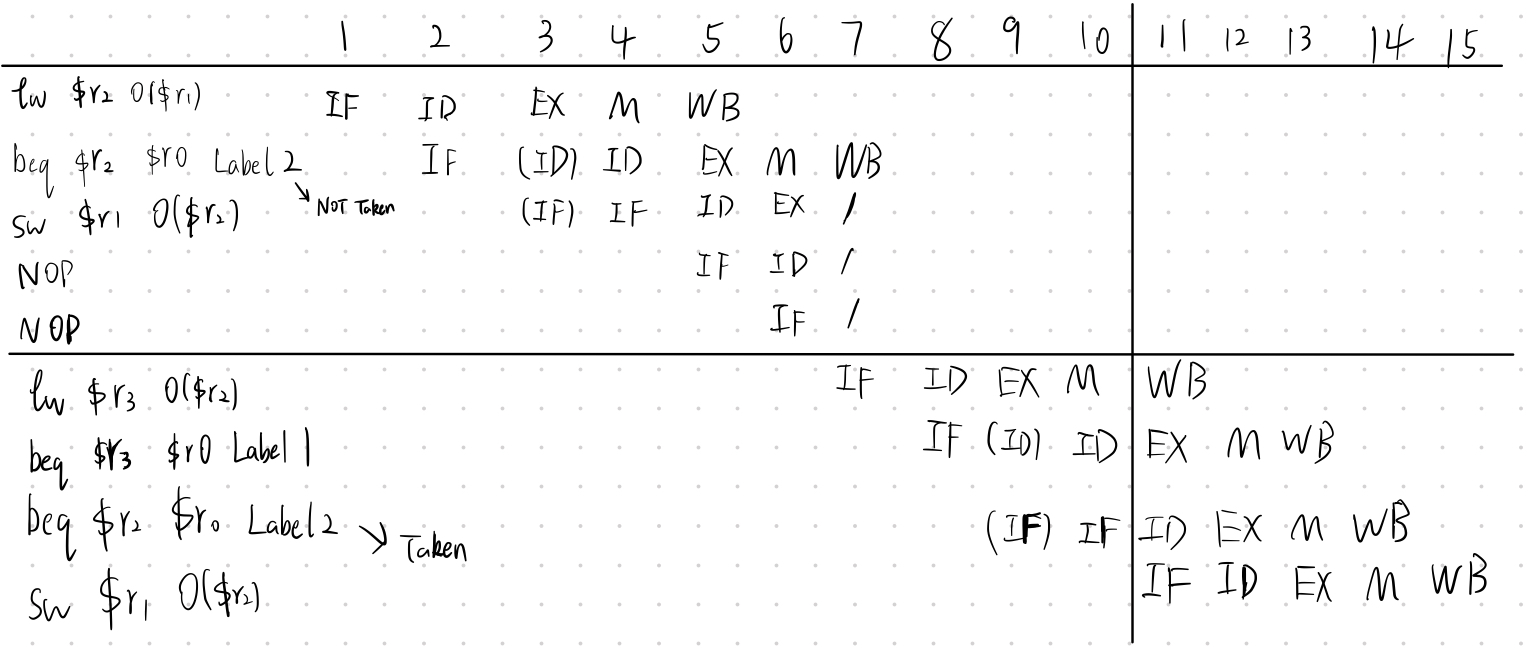 1 2 3 4 5 6 7 8 9 10 11 12 13 14 15
lw $r2 0($r1) IF ID EX M WB
beq $r2 $r0 Label2 IF (ID) ID EX M WB
↘ NOT Taken
sw $r1 0($r2) (IF) IF ID EX /
NOP IF ID /
NOP IF /
lw $r3 0($r2) IF ID EX M WB
beq $r3 $r0 Label1 IF (ID) ID EX M WB
beq $r2 $r0 Label2 ↘ Taken (IF) IF ID EX M WB
sw $r1 0($r2) IF ID EX M WB